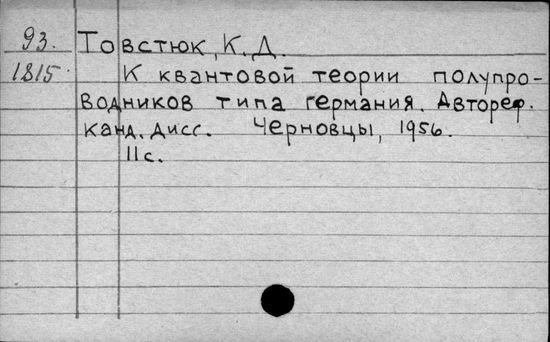 93. Товстюк, К.Д.
1815. К квантовой теории полупро-
водников типа германия. Автореф.
канд. дисс. Черновцы, 1956.
11с.